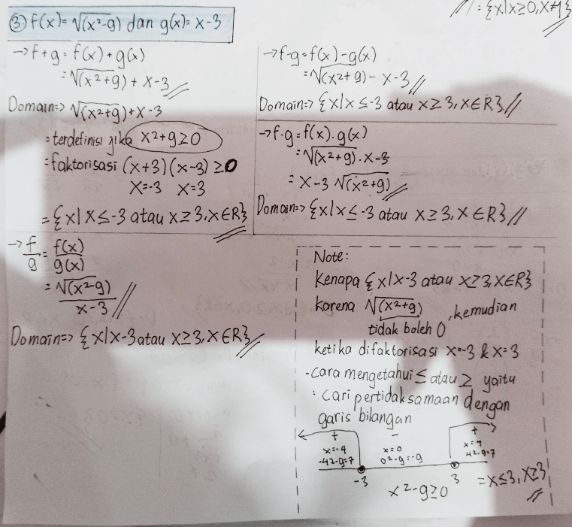 : {x|x≥0, x≠1}
③ f(x) = √(x²-9) dan g(x) = x-3
→ f+g = f(x) + g(x)
= √(x²+9) + x-3
Domain=> √(x²+9)+x-3
= terdefinisi jika x²+9≥0
= faktorisasi (x+3)(x-3) ≥0
x=-3 x=3
= {x|x≤-3 atau x≥3, x∈R}
→ f-g = f(x) - g(x)
= √(x²+9) - x-3
Domain=> {x|x≤-3 atau x≥3, x∈R}
→ f·g = f(x). g(x)
= √(x²+9) . x-3
= x-3 √(x²+9)
Domain=> {x|x≤-3 atau x≥3, x∈R}
→ f/g = f(x)/g(x)
= √(x²-9)
x-3
Domain=> {x|x-3 atau x≥3, x∈R}
Note:
Kenapa {x|x-3 atau x≥3, x∈R}
karena √(x²+9), kemudian
tidak boleh 0
ketika difaktorisasi x=-3 & x=3
-cara mengetahui ≤ atau ≥ yaitu
: cari pertidaksamaan dengan
garis bilangan
+ - +
x=-4 x=0 x=4
-4²-9=7 0²-9=-9 4²-9=7
-3 3
x²-9≥0 = x≤3, x≥3